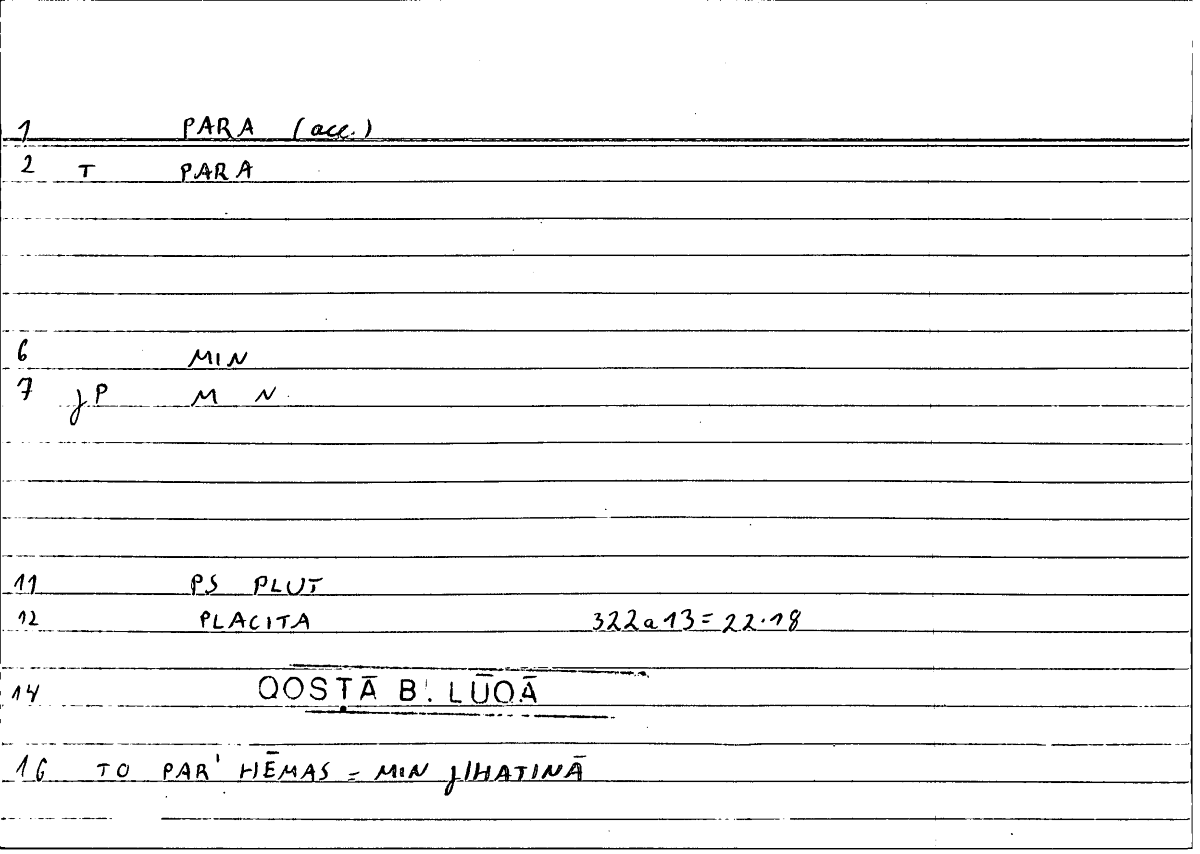 1 PARA (acc.)
2 T PARA
6 MIN
7 ȷP M N
11 PS PLUT
12 PLACITA 322a13=22.18
14 QOSṬĀ B. LŪQĀ
16 TO PAR' HĒMAS = MIN ȷIHATINĀ